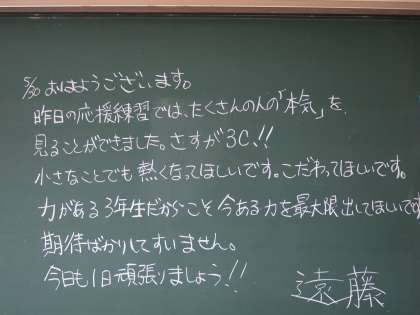 5/30 おはようございます。
昨日の応援練習では、たくさんの人の「本気」を
見ることができました。さすが3C!!
小さなことでも熱くなってほしいです。こだわってほしいです。
力がある3年生だからこそ今ある力を最大限出してほしいです
期待ばかりしてすいません。
今日も1日頑張りましょう!!
遠藤